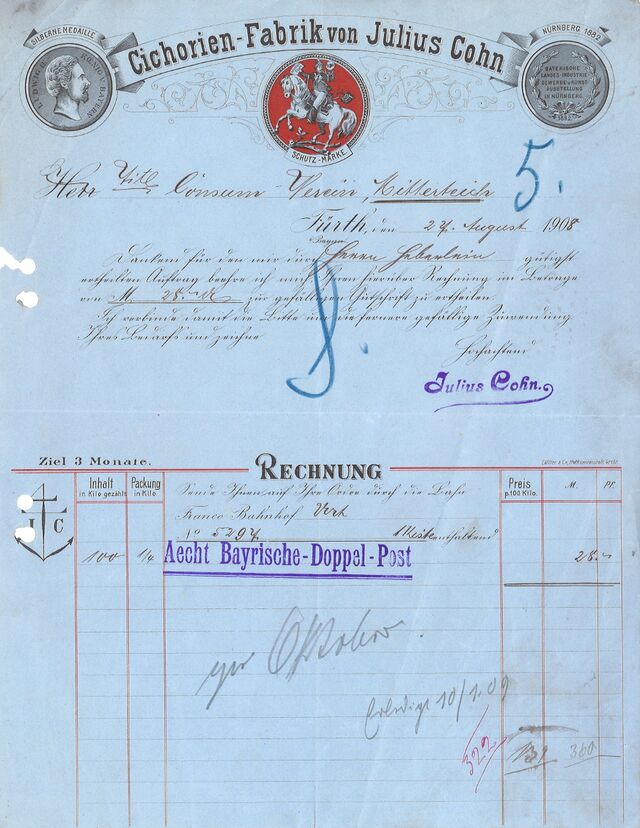 SILBERNE MEDAILLE
NÜRNBERG 1882
Cichorien-Fabrik von Julius Cohn
LUDWIG II KOENIG V. BAYERN
BAYERISCHE
LANDES-INDUSTRIE
GEWERBE u. KUNST
AUSSTELLUNG
IN NÜRNBERG
1882
SCHUTZ-MARKE
Herr Titl Consum-Verein, Mitterteich
5.
Fürth, den 27. August 1908
Dankend für den mir durch Herrn Heberlein gütigst
ertheilten Auftrag beehre ich mich Ihnen hierüber Rechnung im Betrage
von M. 28.- zur gefälligen Gutschrift zu ertheilen.
Ich verbinde damit die Bitte um die fernere gefällige Zuwendung
Ihres Bedarfs und zeichne
Hochachtend
Julius Cohn.
Ziel 3 Monate.
RECHNUNG
Inhalt
in Kilo gezählt
Packung
in Kilo
Preis
p.100 Kilo.
M.
Pf.
J C
Sende Ihnen auf Ihre Ordre durch die Bahn
Franco Bahnhof Vert
No 5297 1 Kiste enthaltend
100 1/4 Aecht Bayrische-Doppel-Post 28.-
per Oktober.
Erledigt 10/1.09
322
360